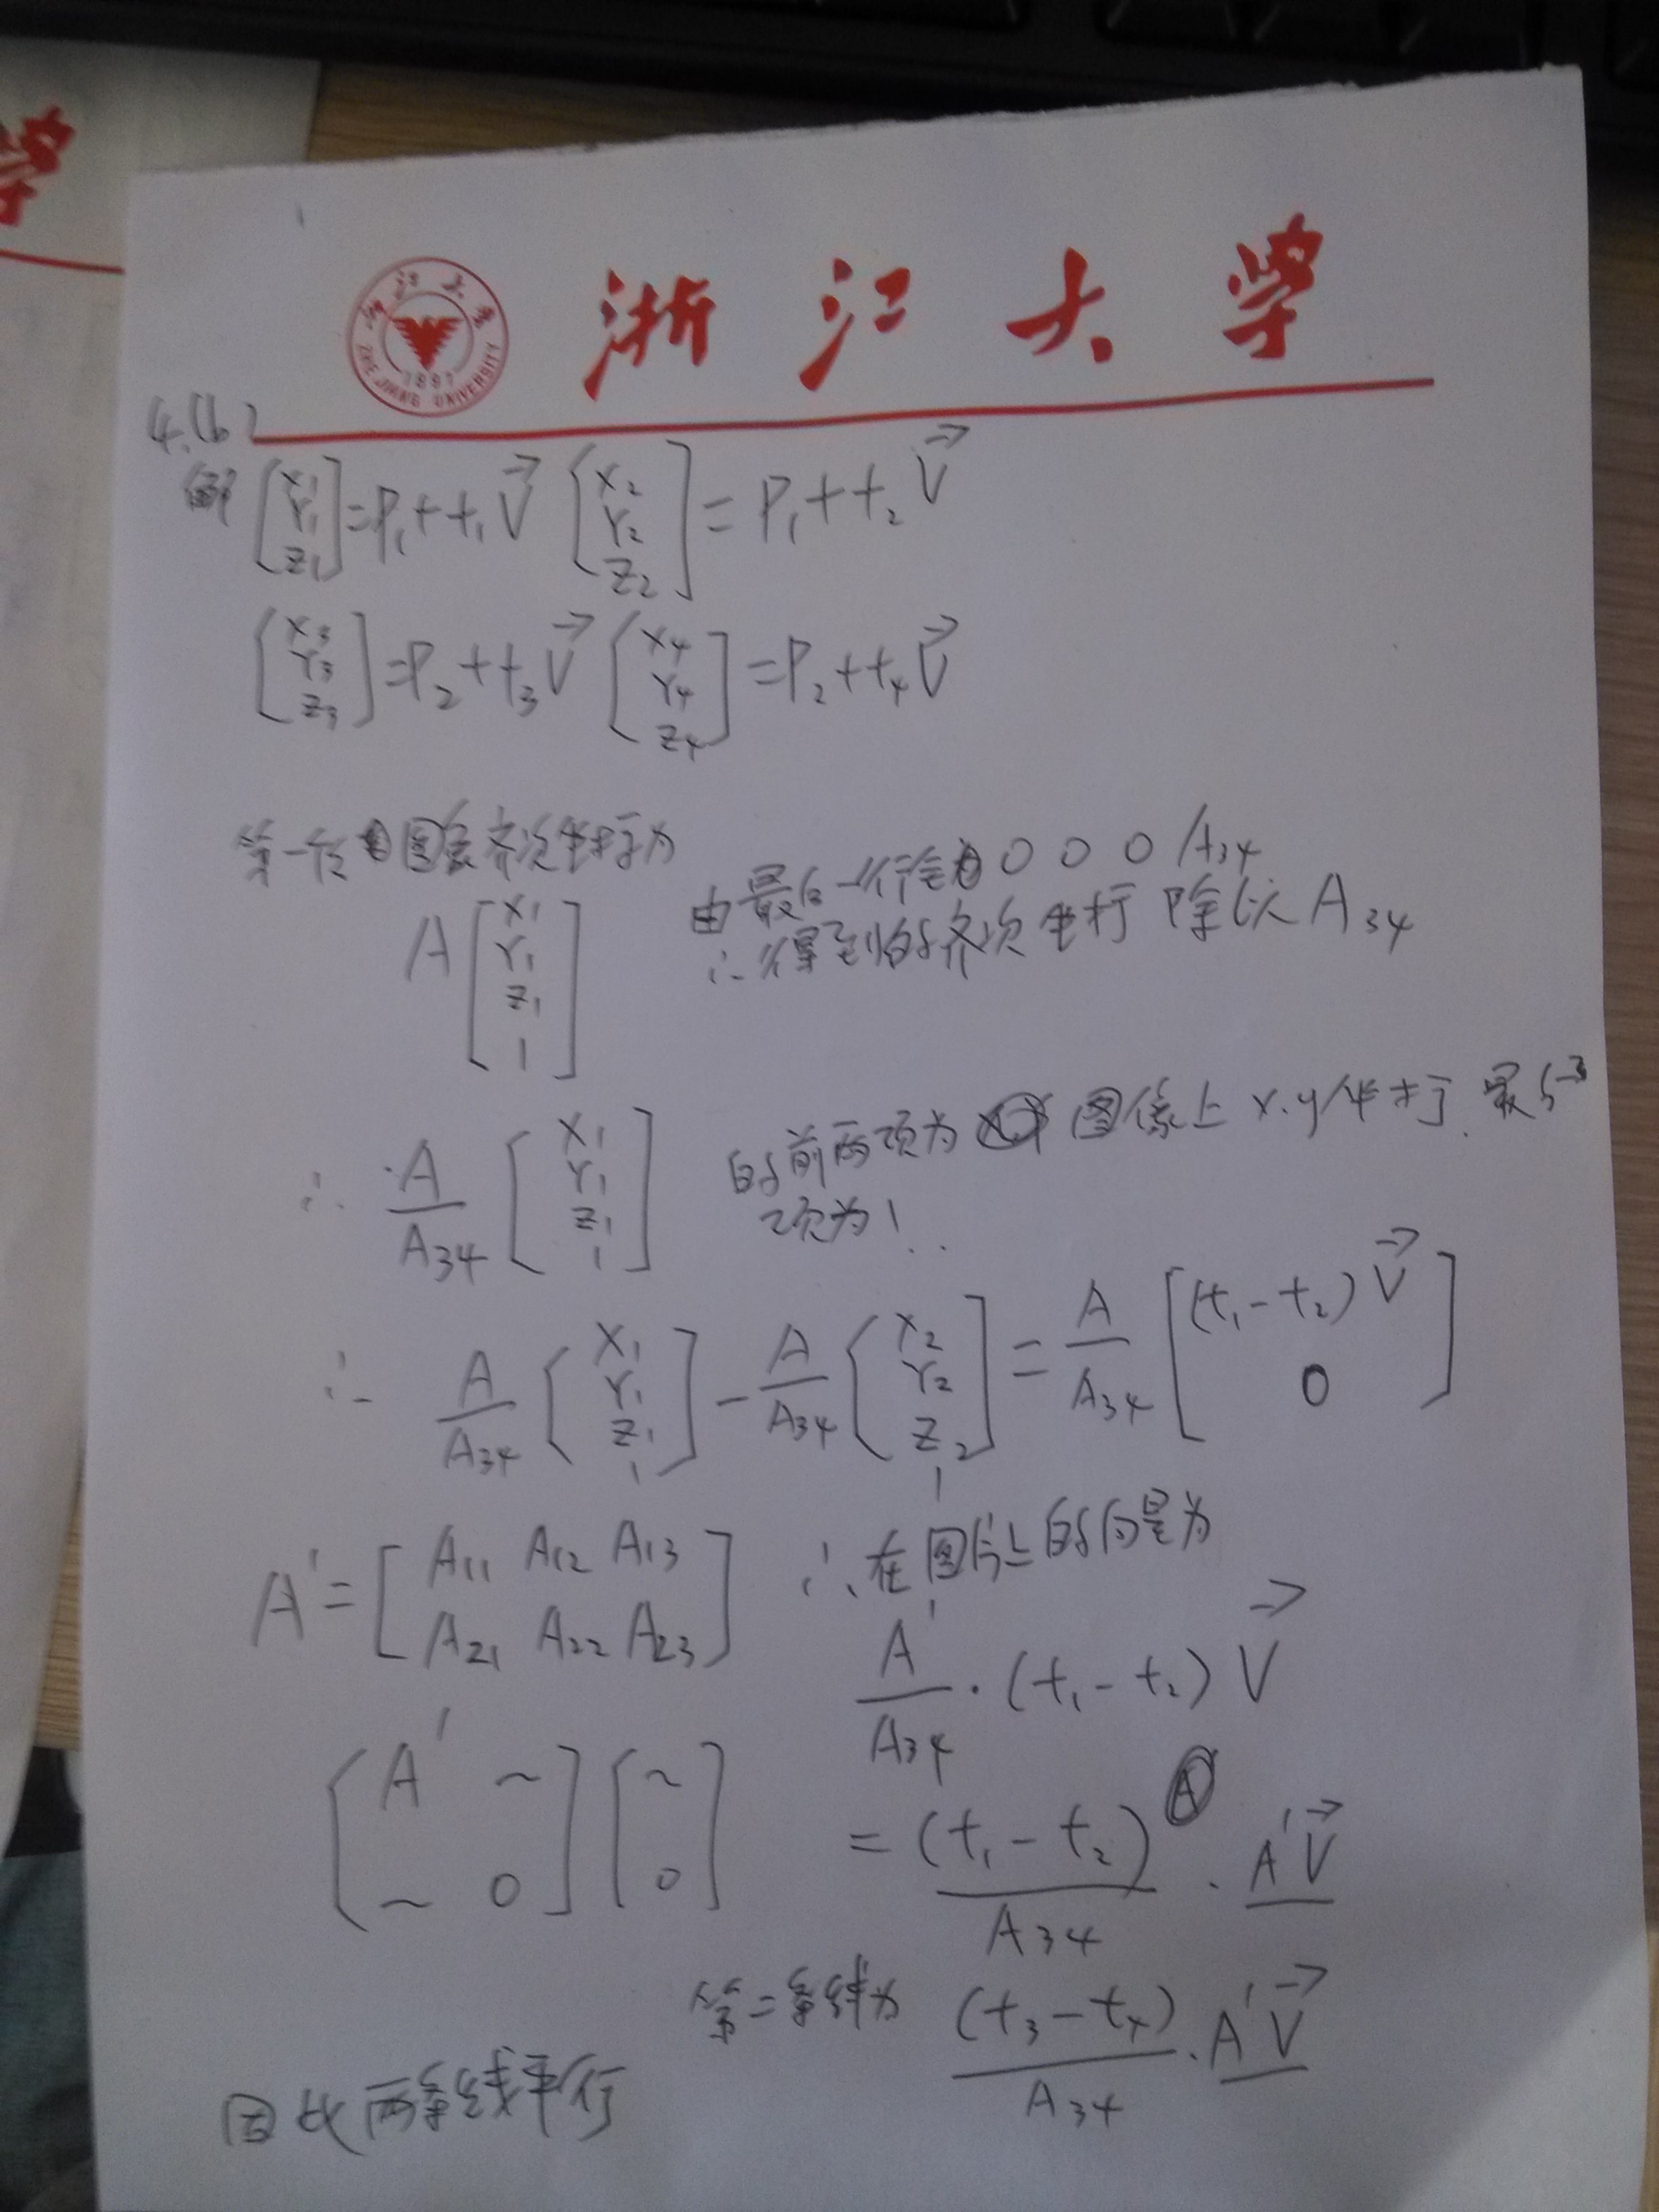 学
浙江大学
浙江大学
ZHEJIANG UNIVERSITY
1897
4.(b)
解 [X1 Y1 Z1] = P1 + t1 V⃗ [X2 Y2 Z2] = P1 + t2 V⃗
[X3 Y3 Z3] = P2 + t3 V⃗ [X4 Y4 Z4] = P2 + t4 V⃗
第一个 图象齐次坐标为
由最后一行 为 0 0 0 A34
A [X1 Y1 Z1 1]
∴ 得到的齐次坐标 除以 A34
∴ A/A34 [X1 Y1 Z1 1] 的前两项为 图像上 x.y坐标. 最后一
项为1.
∴ A/A34 [X1 Y1 Z1 1] - A/A34 [X2 Y2 Z2 1] = A/A34 [(t1 - t2) V⃗ 0]
A' = [A11 A12 A13 A21 A22 A23] ∴ 在图像上的向量为
A'/A34 · (t1 - t2) V⃗
[A' ~ ~ 0] [~ 0] = (t1 - t2)/A34 · A'V⃗
第二条线为 (t3 - t4)/A34 · A'V⃗
因此两条线平行